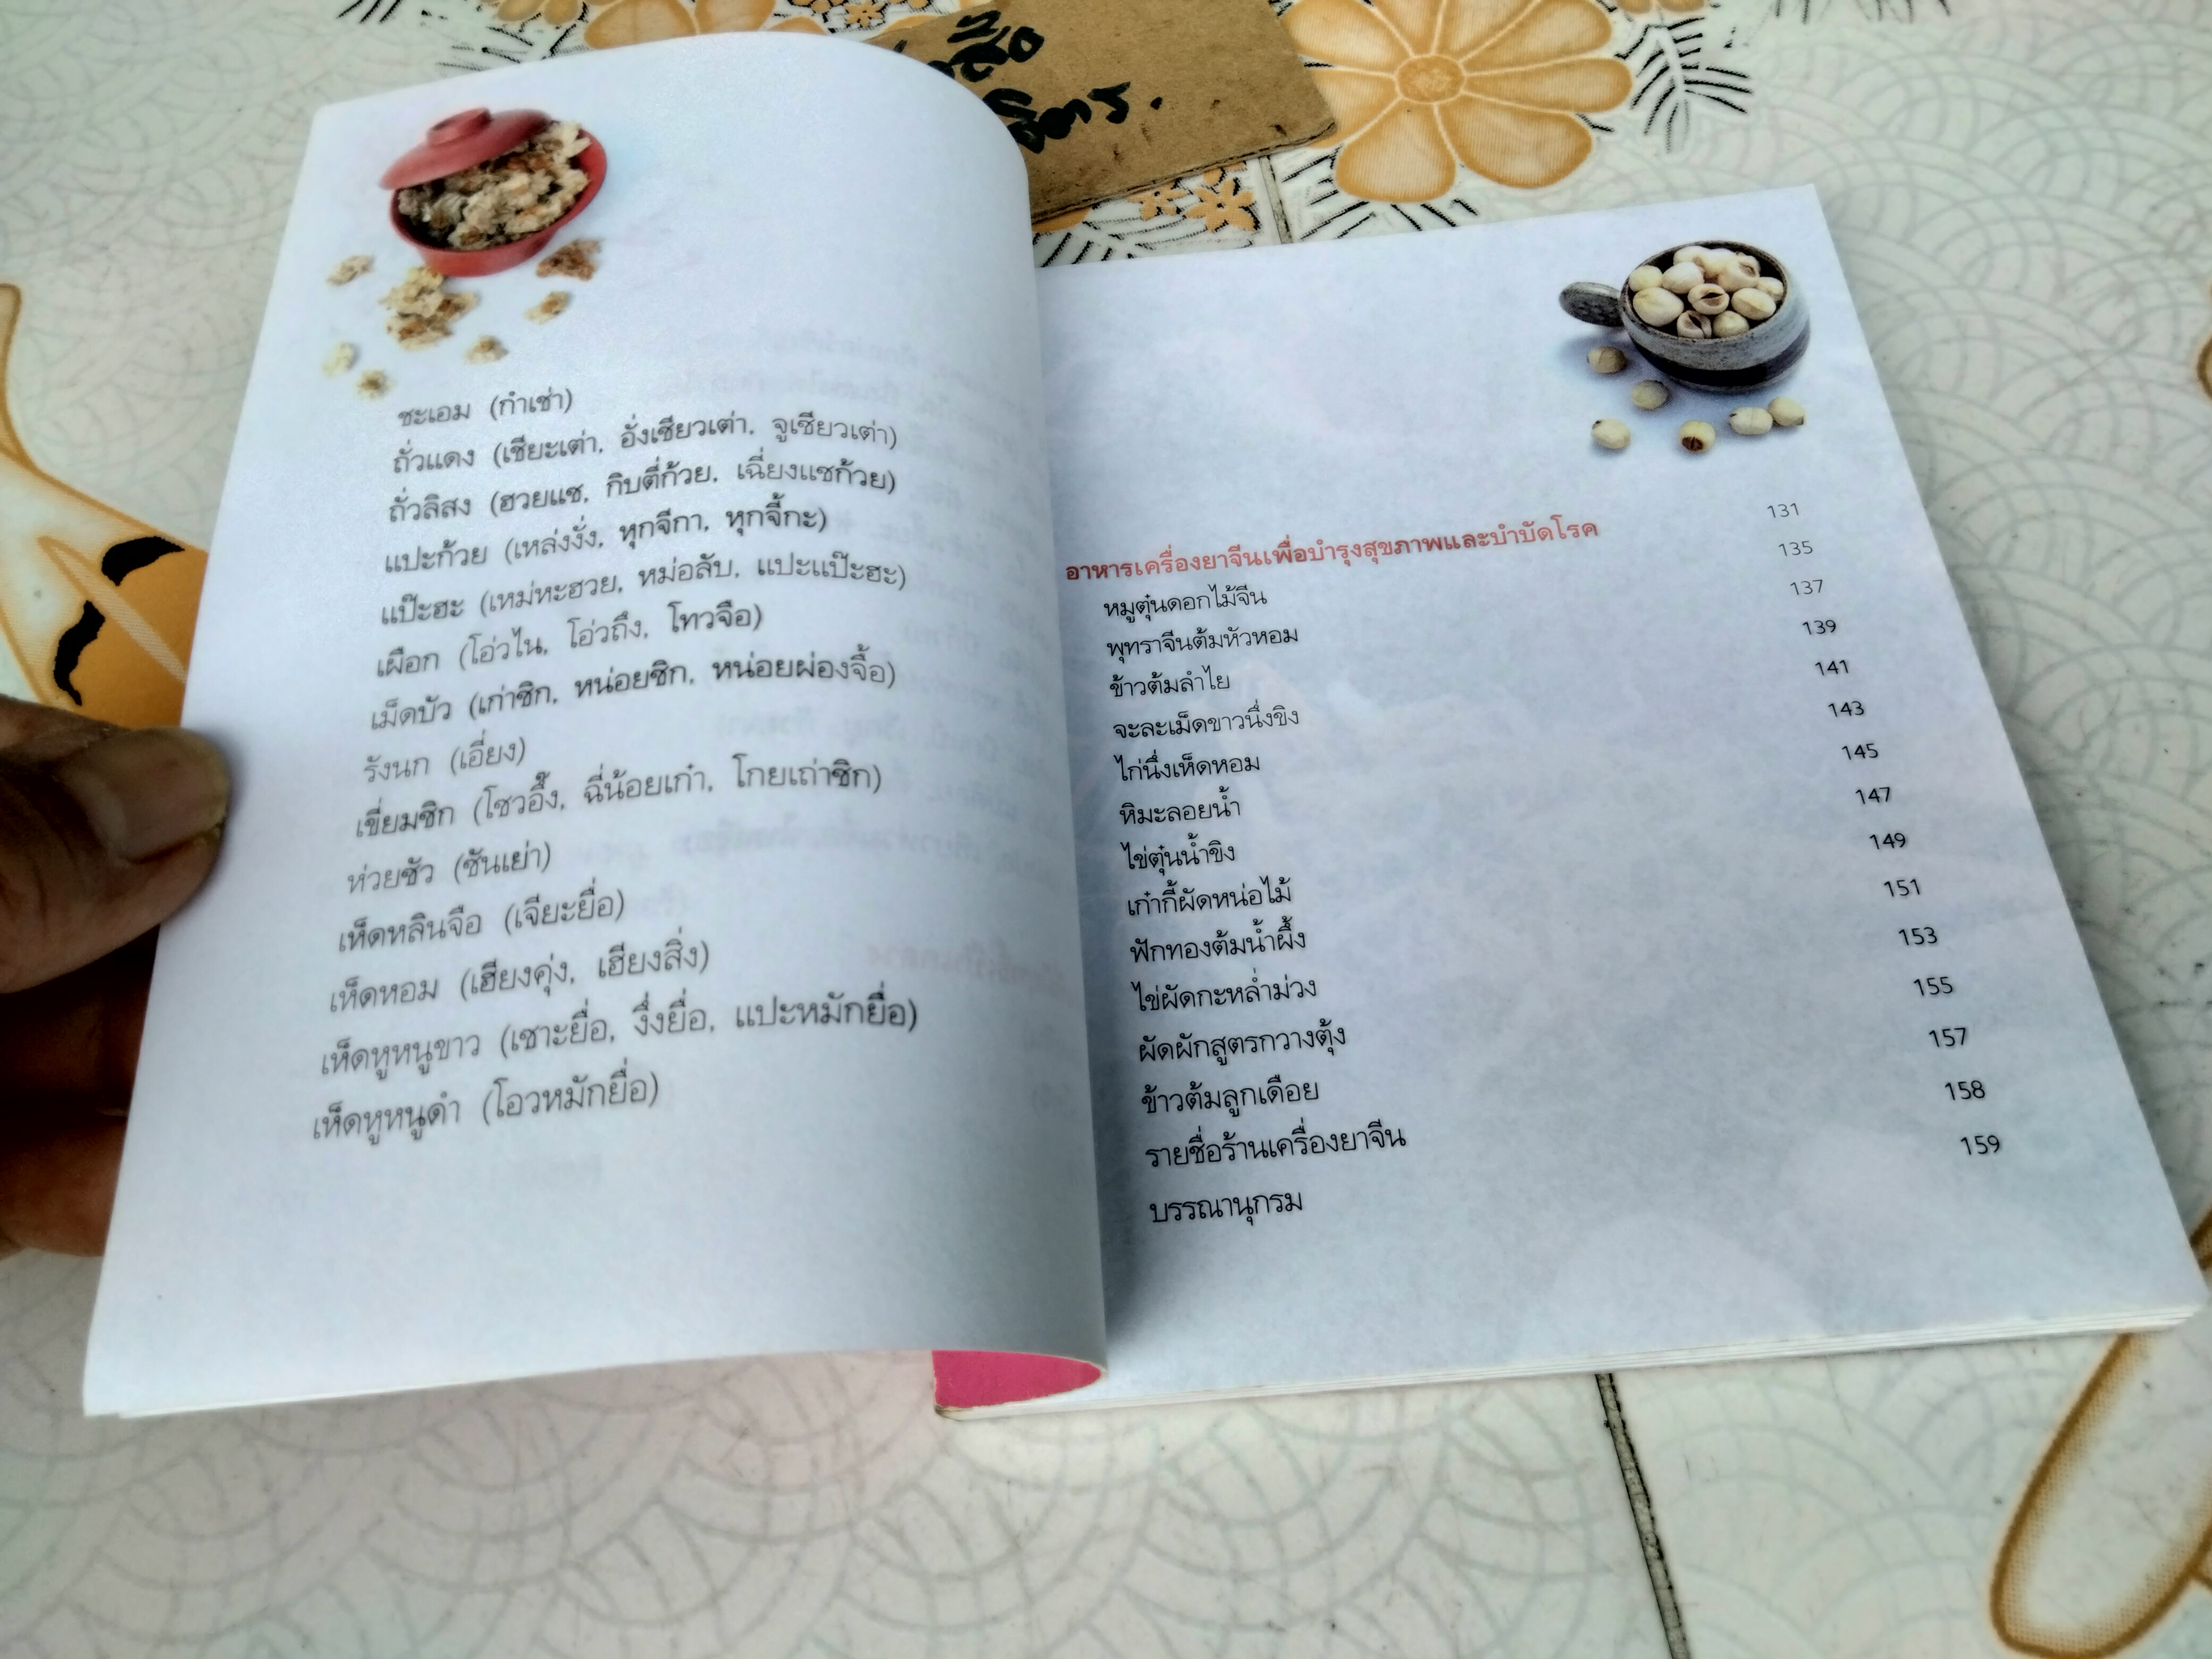 ชะเอม (กำเช่า)
ถั่วแดง (เซียะเต่า, อั่งเซียวเต่า, จูเซียวเต่า)
ถั่วลิสง (ฮวยแซ, กิบตี่ก้วย, เฉี่ยงแซก้วย)
แปะก้วย (เหล่งงั่ง, หุกจีกา, หุกจี้กะ)
แป๊ะฮะ (เหม่หะฮวย, หม่อลับ, แปะแป๊ะฮะ)
เผือก (โอ่วไน, โอ่วถึง, โทวจือ)
เม็ดบัว (เก่าซิก, หน่อยซิก, หน่อยผ่องจื้อ)
รังนก (เอี่ยง)
เขี่ยมซิก (โซวอึ๊ง, ฉี่น้อยเก๋า, โกยเถ่าซิก)
ห่วยซัว (ซันเย่า)
เห็ดหลินจือ (เจียะยื่อ)
เห็ดหอม (เฮียงคุ่ง, เฮียงสิ่ง)
เห็ดหูหนูขาว (เซาะยื่อ, งึ่งยื่อ, แปะหมักยื่อ)
เห็ดหูหนูดำ (โอวหมักยื่อ)
อาหารเครื่องยาจีนเพื่อบำรุงสุขภาพและบำบัดโรค 131
หมูตุ๋นดอกไม้จีน 135
พุทราจีนต้มหัวหอม 137
ข้าวต้มลำไย 139
จะละเม็ดขาวนึ่งขิง 141
ไก่นึ่งเห็ดหอม 143
หิมะลอยน้ำ 145
ไข่ตุ๋นน้ำขิง 147
เก๋ากี้ผัดหน่อไม้ 149
ฟักทองต้มน้ำผึ้ง 151
ไข่ผัดกะหล่ำม่วง 153
ผัดผักสูตรกวางตุ้ง 155
ข้าวต้มลูกเดือย 157
รายชื่อร้านเครื่องยาจีน 158
บรรณานุกรม 159